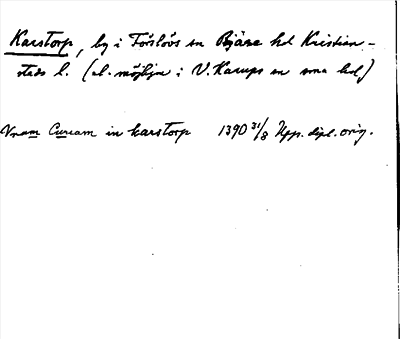 Karstorp, by i Förslövs sn Bjäre hd Kristian-
stads l. (el. möjlijn i V. Karups sn sma hd)
Vnam Curiam in karstorp 1390 31/8 Upp. dipl. orig.